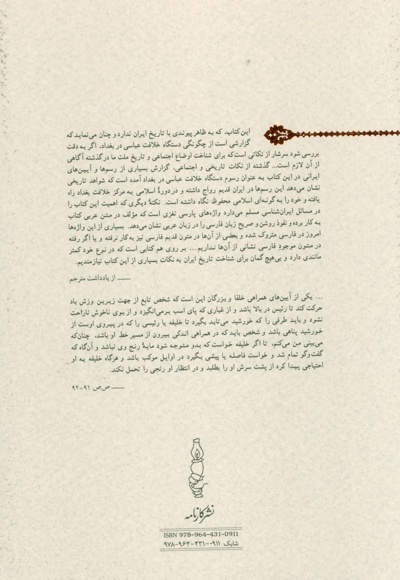 این کتاب، که به ظاهر پیوندی با تاریخ ایران ندارد و چنان می‌نماید که
گزارشی است از چگونگی دستگاه خلافت عباسی در بغداد، اگر به دقت
بررسی شود سرشار از نکاتی است که برای شناخت اوضاع اجتماعی و تاریخ ملت ما در گذشته آگاهی
از آن لازم است.. گذشته از نکات تاریخی و اجتماعی، گزارش بسیاری از رسم‌ها و آیین‌های
ایرانی در این کتاب به عنوان رسوم دستگاه خلافت عباسی در بغداد آمده است که شواهد تاریخی
نشان می‌دهد این رسم‌ها در ایران قدیم رواج داشته و در دورۀ اسلامی به مرکز خلافت بغداد راه
یافته و خود را به گونه‌ای اسلامی محفوظ نگاه داشته است. نکتۀ دیگری که اهمیت این کتاب را
در مسائل ایران‌شناسی مسلم می‌دارد واژه‌های پارسی نغزی است که مؤلف در متن عربی کتاب
به کار برده و نفوذ روشن و صریح زبان فارسی را در زبان عربی نشان می‌دهد. بسیاری از این واژه‌ها
امروز در فارسی متروک شده و بعضی از آن‌ها در متون قدیم فارسی نیز به کار نرفته و یا اگر رفته
در متون موجود فارسی نشانی از آن‌ها نداریم... بر روی هم کتابی است که در نوع خود کمتر
مانندی دارد و بی‌هیچ گمان برای شناخت تاریخ ایران به نکات بسیاری از این کتاب نیازمندیم.
ــــــ از یادداشت مترجم
... یکی از آیین‌های همراهی خلفا و بزرگان این است که شخص تابع از جهت زیرین وزش باد
حرکت کند تا رئیس در بالا باشد و از غباری که پای اسب برمی‌انگیزد و از بوی ناخوش ناراحت
نشود و باید طرفی را که خورشید می‌تابد بگیرد تا خلیفه یا رئیسی را که در پیروی اوست از
خورشید پناهی باشد و شخص باید که در همراهی اندکی بیرون از مسیر خط او باشد. چنان‌که
می‌بینی من می‌کنم، تا اگر خلیفه خواست که بدو متوجه شود مایۀ رنج وی نباشد و آن‌گاه که
گفت‌وگو تمام شد و خواست فاصله یا پیشی بگیرد در اوایل موکب باشد و هرگاه خلیفه به او
احتیاجی پیدا کرد از پشت سرش او را بطلبد و در انتظار او رنجی را تحمل نکند.
ــــــ صص ۹۱-۹۲
نشر کارنامه
ISBN 978-964-431-0911
شابک ۰۹۱۱-۴۳۱-۹۶۴-۹۷۸